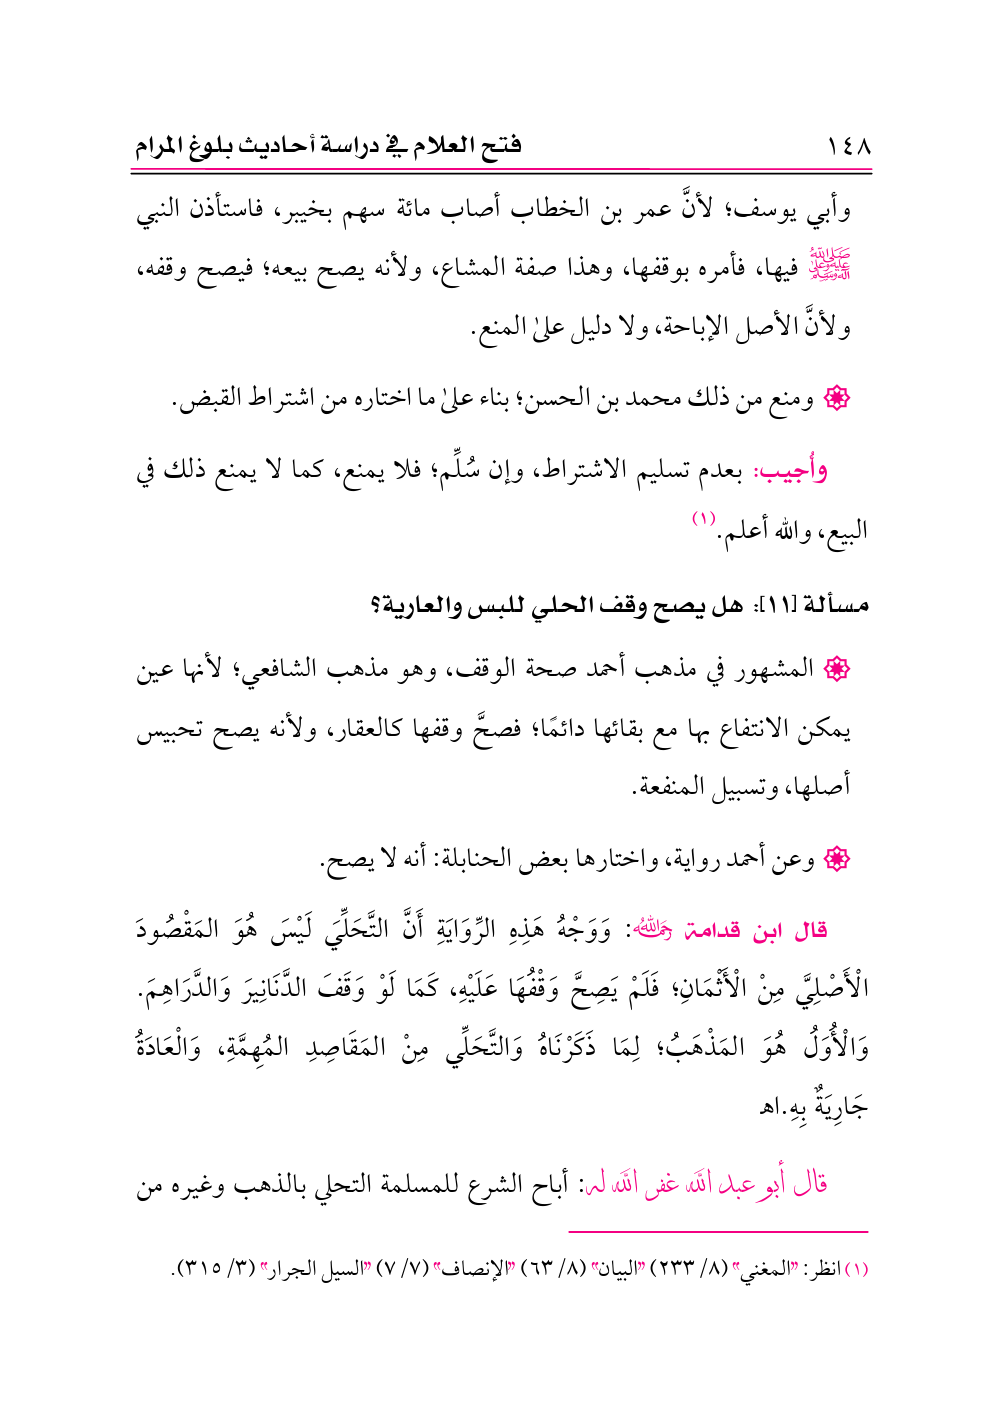 ١٤٨ فتح العلام في دراسة أحاديث بلوغ المرام
وأبي يوسف؛ لأنَّ عمر بن الخطاب أصاب مائة سهم بخيبر، فاستأذن النبي
ﷺ فيها، فأمره بوقفها، وهذا صفة المشاع، ولأنه يصح بيعه؛ فيصح وقفه،
ولأنَّ الأصل الإباحة، ولا دليل علىٰ المنع.
۞ ومنع من ذلك محمد بن الحسن؛ بناء علىٰ ما اختاره من اشتراط القبض.
وأُجيب: بعدم تسليم الاشتراط، وإن سُلِّم؛ فلا يمنع، كما لا يمنع ذلك في
البيع، والله أعلم.(١)
مسألة [١١]: هل يصح وقف الحلي للبس والعارية؟
۞ المشهور في مذهب أحمد صحة الوقف، وهو مذهب الشافعي؛ لأنها عين
يمكن الانتفاع بها مع بقائها دائمًا؛ فصحَّ وقفها كالعقار، ولأنه يصح تحبيس
أصلها، وتسبيل المنفعة.
۞ وعن أحمد رواية، واختارها بعض الحنابلة: أنه لا يصح.
قال ابن قدامة رحمه الله: وَوَجْهُ هَذِهِ الرِّوَايَةِ أَنَّ التَّحَلِّيَ لَيْسَ هُوَ المَقْصُودَ
الْأَصْلِيَّ مِنْ الْأَثْمَانِ؛ فَلَمْ يَصِحَّ وَقْفُهَا عَلَيْهِ، كَمَا لَوْ وَقَفَ الدَّنَانِيرَ وَالدَّرَاهِمَ.
وَالْأُوَلُ هُوَ المَذْهَبُ؛ لِمَا ذَكَرْنَاهُ وَالتَّحَلِّي مِنْ المَقَاصِدِ المُهِمَّةِ، وَالْعَادَةُ
جَارِيَةٌ بِهِ.اهـ
قال أبو عبد الله غفر الله له: أباح الشرع للمسلمة التحلي بالذهب وغيره من
(١) انظر: "المغني" (٨/ ٢٣٣) "البيان" (٨/ ٦٣) "الإنصاف" (٧/ ٧) "السيل الجرار" (٣/ ٣١٥).